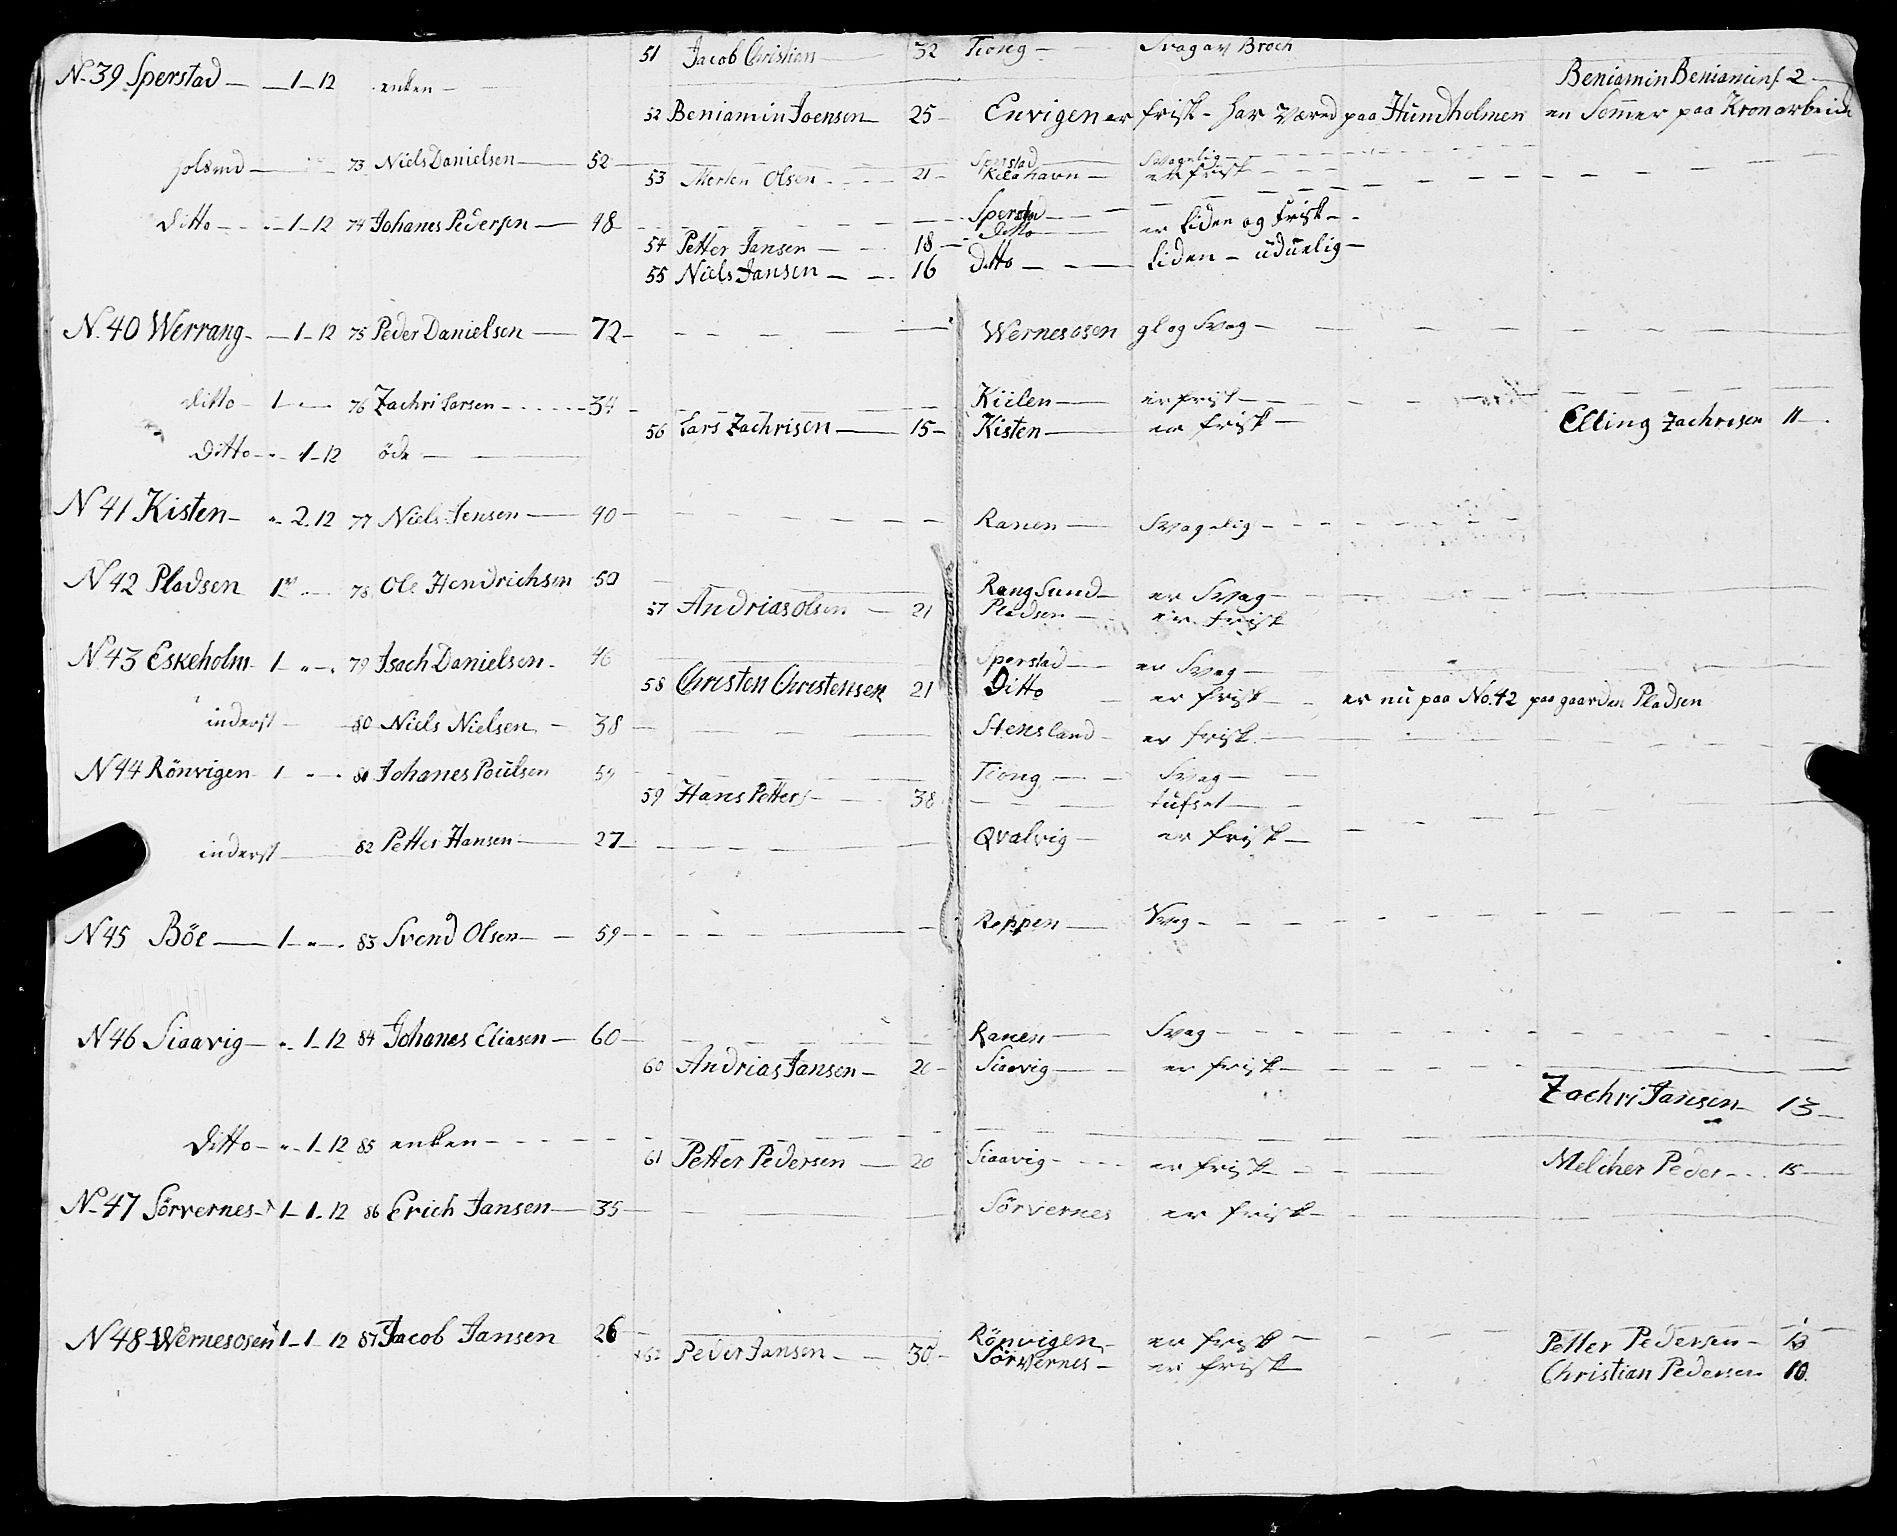 51 Jacob Christian 32 Tiong Svag av Broch
N. 39 Sperstad 1 12 enken Beniamin Beniamins. 2
52 Beniamin Joensen 25 Envigen er frisk har været paa Hundholmen en Sommer paa Kronarbeide
73 Niels Danielsen 52 Sperstad Svagelig
53 Merten Olsen 21 er frisk
Ditto 1 12 74 Johanes Pedersen 48 Sperstad
54 Petter Jansen 18 Ditto er liden og frisk
55 Niels Jansen 16 Ditto liden uduelig
N. 40 Werrang 1 12 75 Peder Danielsen 72 Wernesosen gl og Svag
Ditto 1 76 Zachri Larsen 34 Kiilen er frisk
56 Lars Zachrisen 15 Kisten er frisk Elling Zachrisen 11
Ditto 1 12 öde
N 41 Kisten 2 12 77 Niels Jensen 40 Ranen Svagelig
N 42 Pladsen 1 78 Ole Hendrichsen 50 Rangsund er Svag
57 Andrias Olsen 21 Pladsen er frisk
N 43 Eskeholm 1 79 Isach Danielsen 46 Sperstad er Svag
58 Christen Christensen 21 Ditto er frisk er nu paa No. 42 paa gaarden Pladsen
inderst 80 Niels Nielsen 38 Stensland er frisk
N 44 Rönvigen 1 81 Johanes Poulsen 54 Tiong Svag
59 Hans Petters 38
inderst 82 Petter Hansen 27 Qvalvig er frisk
N 45 Böe 1 83 Svend Olsen 59 Reppen Svag
N 46 Siaavig 1 12 84 Johanes Eliasen 60 Ranen Svag
60 Andrias Jansen Siaavig er frisk
Zachri Jansen 13
Ditto 1 12 85 enken
61 Petter Pedersen 20 Siaavig er frisk Melcher Peder 15
N. 47 Sörvernes 1 1 12 86 Erich Jansen 35 Sörvernes er frisk
N 48 Wernesosen 1 1 12 87 Jacob Jansen 26 Rönvigen er frisk Petter Pedersen 13
62 Peder Jansen 30 Sörvernes er frisk Christian Pedersen 10